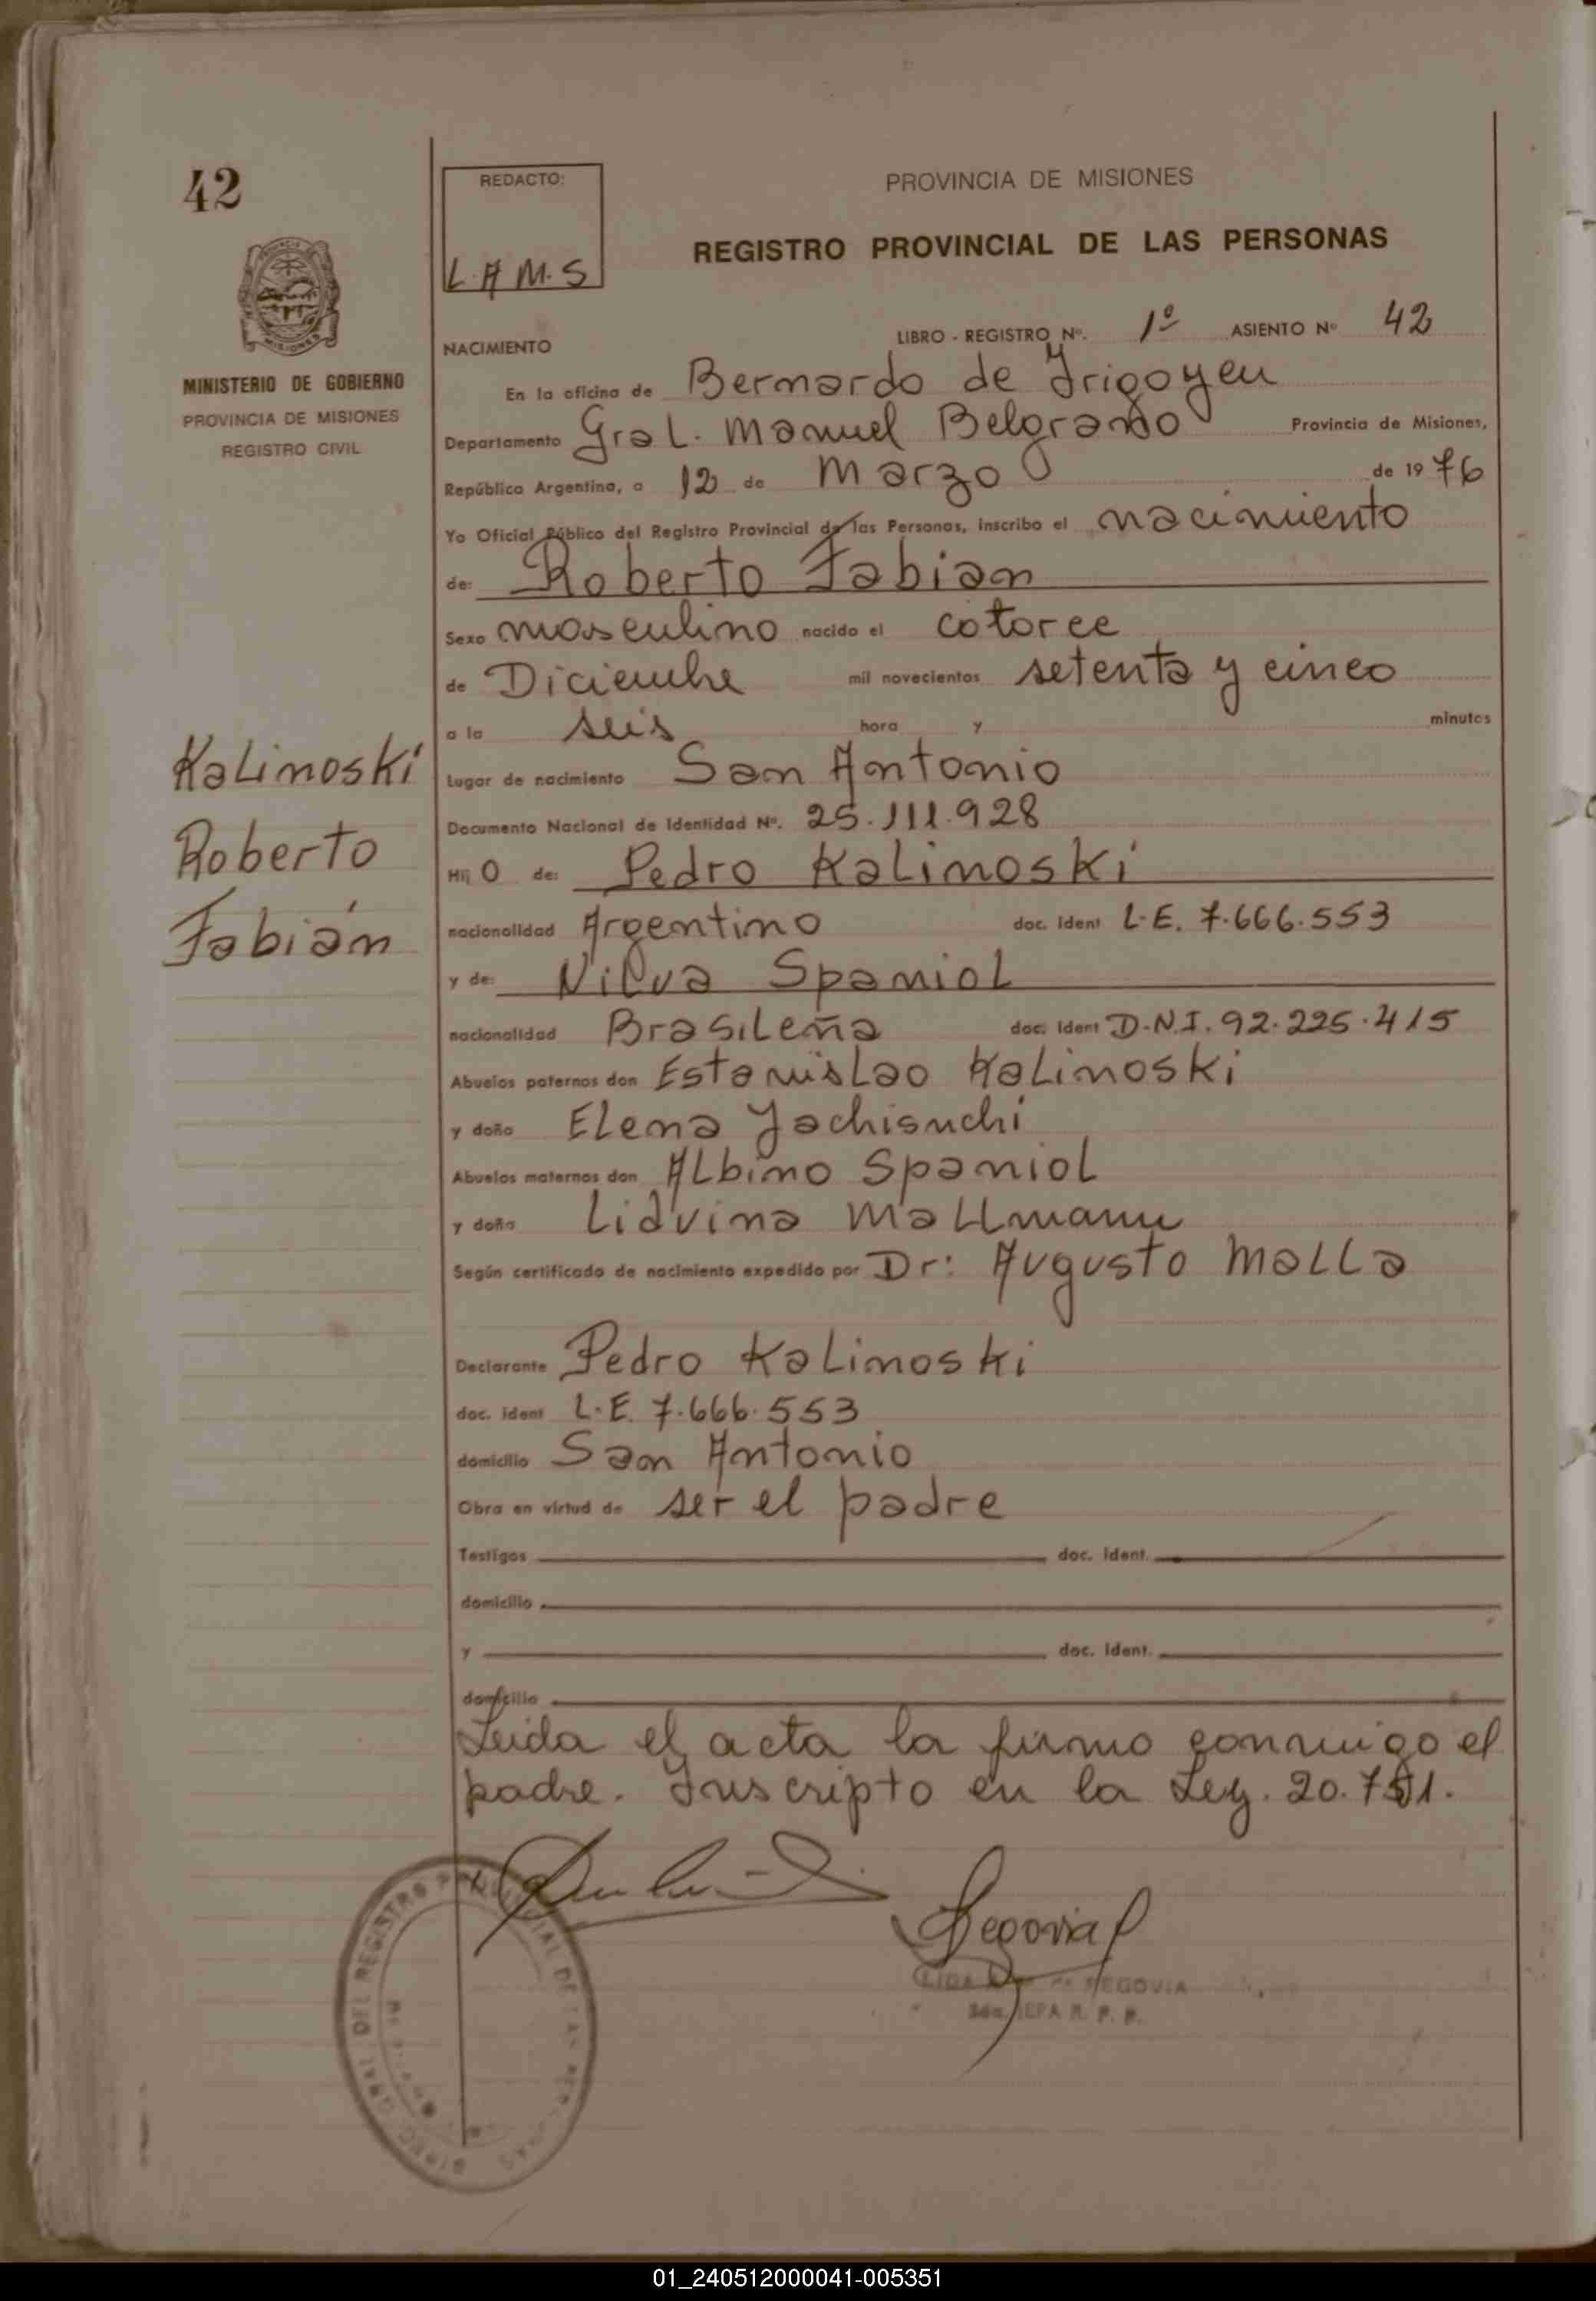 42
REDACTO:
L.A M.S
PROVINCIA DE MISIONES
REGISTRO PROVINCIAL DE LAS PERSONAS
MINISTERIO DE GOBIERNO
PROVINCIA DE MISIONES
REGISTRO CIVIL
NACIMIENTO LIBRO - REGISTRO Nº. 1º ASIENTO Nº 42
En la oficina de Bernardo de Irigoyen
Departamento Gral. Manuel Belgrano Provincia de Misiones,
República Argentina, a 12 de Marzo de 1976
Yo Oficial Público del Registro Provincial de las Personas, inscribo el nacimiento
de: Roberto Fabian
Sexo masculino nacido el catorce
de Diciembre mil novecientos setenta y cinco
a la seis hora y minutos
Lugar de nacimiento San Antonio
Documento Nacional de Identidad Nº. 25.111.928
Hij o de: Pedro Kalinoski
nacionalidad Argentino doc. Ident L.E. 7.666.553
y de: Nilva Spaniol
nacionalidad Brasileña doc. Ident D.N.I. 92.225.415
Abuelos paternos don Estanislao Kalinoski
y doña Elena Jachisuchi
Abuelos maternos don Albino Spaniol
y doña Lidvina Mallmann
Según certificado de nacimiento expedido por Dr: Augusto Malla
Declarante Pedro Kalinoski
doc. ident L.E. 7.666.553
domicilio San Antonio
Obra en virtud de ser el padre
Testigos doc. Ident.
domicilio
y doc. Ident.
domicilio
Leida el acta la firmo conmigo el
padre. Inscripto en la Ley. 20.751.
Kalinoski
Roberto
Fabián
Segovia
SEGOVIA
JEFA R. P. P.
DEL REGISTRO PROVINCIAL DE LAS PERSONAS
01_240512000041-005351